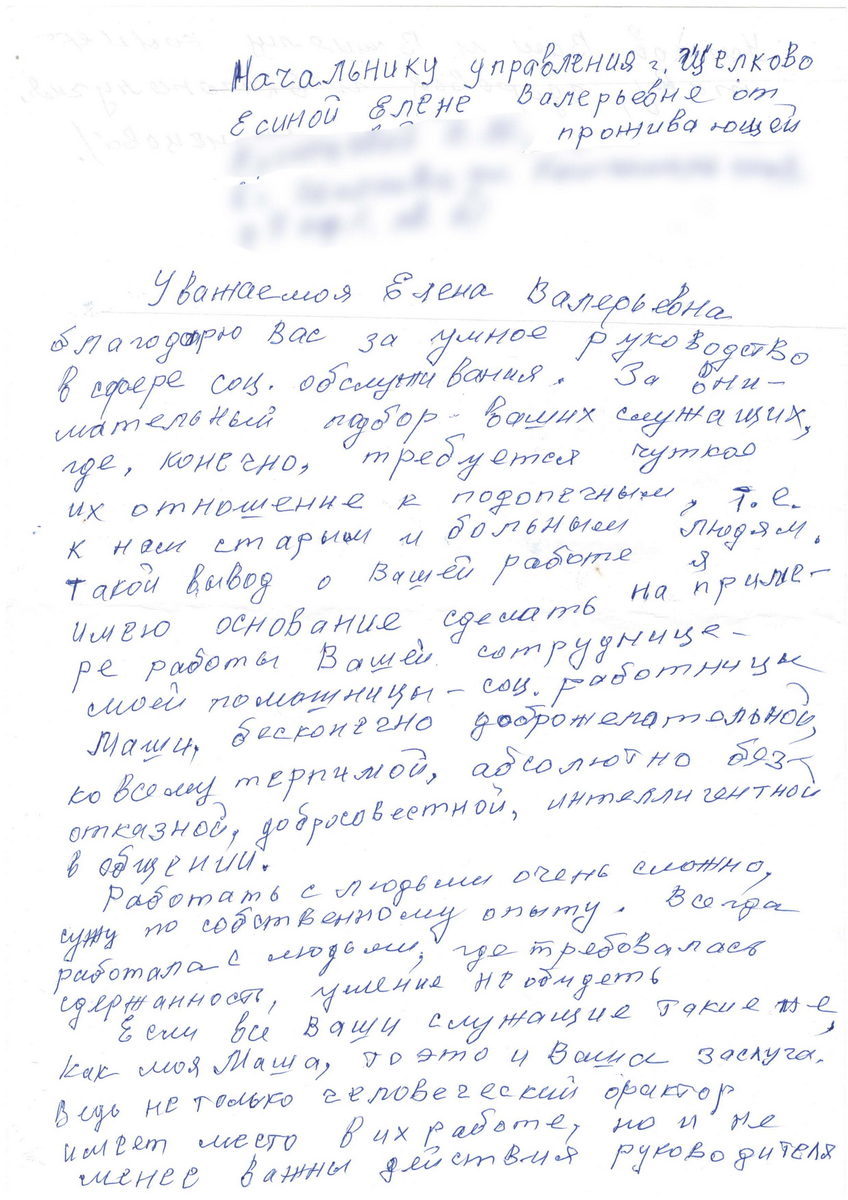 Начальнику управления г. Щелково
Есиной Елене Валерьевне от
проживающей
Уважаемоя Елена Валерьевна
благодорю Вас за умное руководство
в сфере соц. обслуживания. За вни-
мательный подбор ваших служащих,
где, конечно, требуется чуткое
их отношение к подопечным, т.е.
к нам старым и больным людям.
Такой вывод о Вашей работе я
имею основание сделать на приме-
ре работы Вашей сотруднице-
моей помошницы – соц. работницы
Маши, бесконечно доброжелательной,
ко всему терпимой, абсолютно без-
отказной, добросовестной, интеллигентной
в общении.
Работать с людьми очень сложно,
сужу по собственному опыту. Всегда
работала с людьми, где требовалась
сдержанность, умение не обидеть
Если все Ваши служащие такие же,
как моя Маша, то это и Ваша заслуга.
Ведь не только человеческий фактор
имеет место в их работе, но и не
менее важны действия руководителя